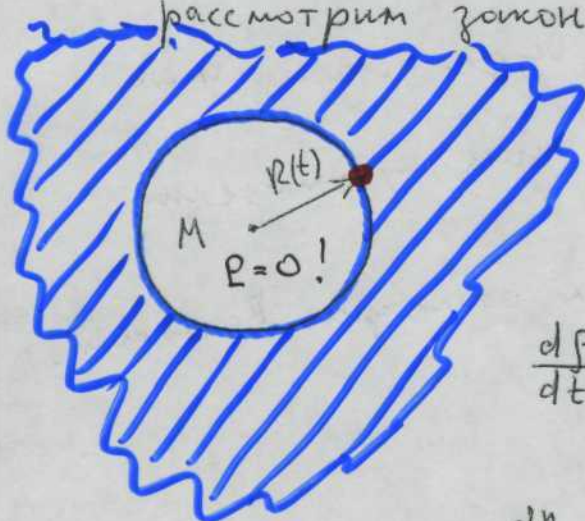 рассмотрим закон
R(t)
M
P=0!
d
dt